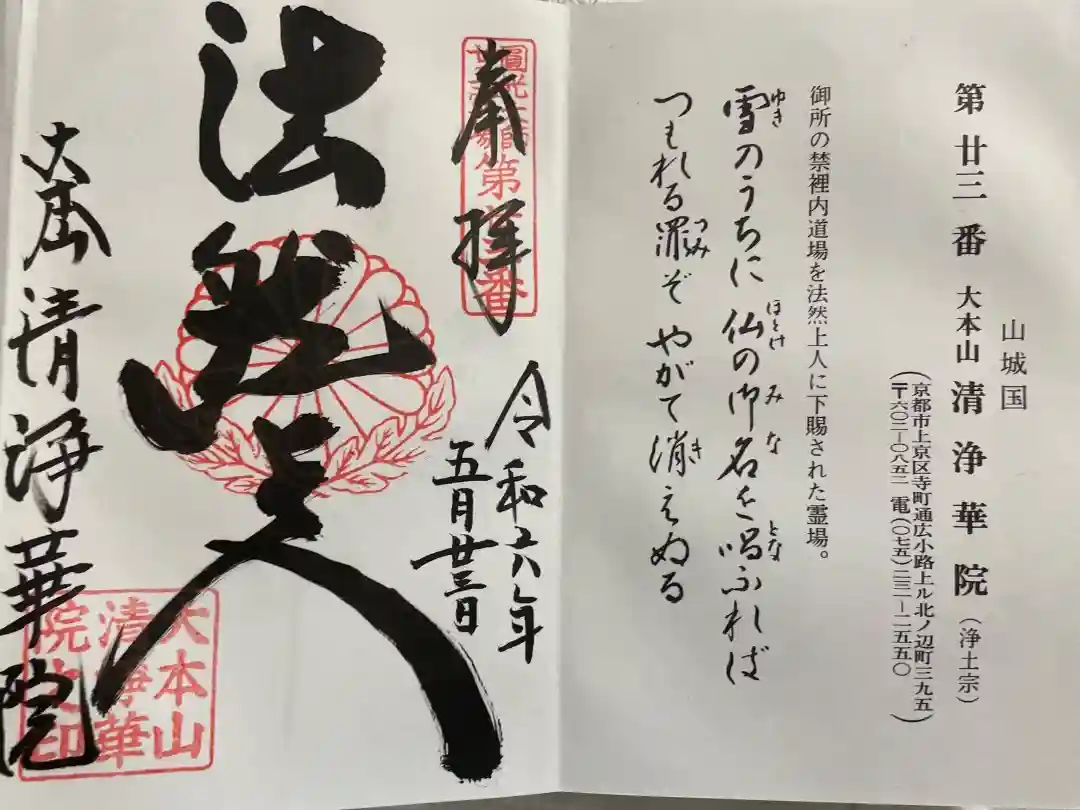 山城国
第廿三番 大本山 清浄華院（浄土宗）
（京都市上京区寺町通広小路上ル北ノ辺町三九五
〒六〇二―〇八五二 電（〇七五）二三一―二五五〇）
御所の禁裡内道場を法然上人に下賜された霊場。
雪のうちに 仏の御名を唱ふれば
ゆき ほとけ みな とな
つもれる罪ぞ やがて消えぬる
つみ き
奉拝
圓光大師
第廿三番
令和六年
五月廿三日
法然上人
大本山 清浄華院
大本山
清浄華
院之印